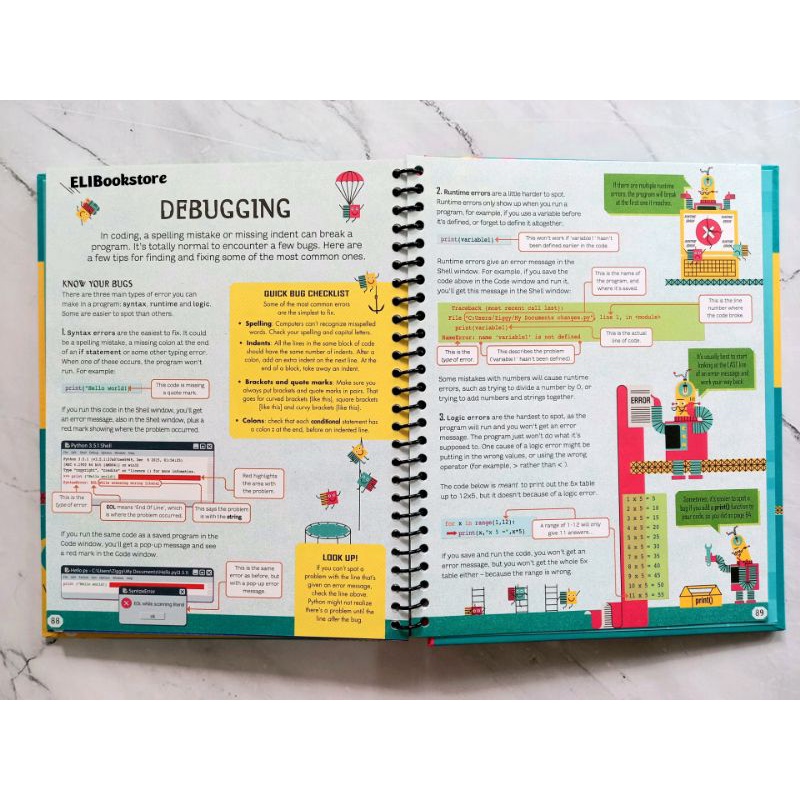 ELIBookstore
DEBUGGING
In coding, a spelling mistake or missing indent can break a
program. It's totally normal to encounter a few bugs. Here are
a few tips for finding and fixing some of the most common ones.
KNOW YOUR BUGS
There are three main types of error you can
make in a program: syntax, runtime and logic.
Some are easier to spot than others.
1. Syntax errors are the easiest to fix. It could
be a spelling mistake, a missing colon at the end
of an if statement or some other typing error.
When one of these occurs, the program won't
run. For example:
print("Hello world!)
This code is missing
a quote mark.
If you run this code in the Shell window, you'll get
an error message, also in the Shell window, plus a
red mark showing where the problem occurred.
Python 3.5.1 Shell
Type "copyright", "credits" or "license()" for more information.
>>> print ("Hello world!)
SyntaxError: EOL while scanning string literal
Red highlights
the area with
the problem.
This is the
type of error.
EOL means 'End Of Line', which
is where the problem occurred.
This says the problem
is with the string.
If you run the same code as a saved program in the
Code window, you'll get a pop-up message and see
a red mark in the Code window.
print ("Hello world!)
SyntaxError
EOL while scanning literal
ok
This is the same
error as before, but
with a pop-up error
message.
88
QUICK BUG CHECKLIST
Some of the most common errors
are the simplest to fix.
• Spelling: Computers can't recognize misspelled
words. Check your spelling and capital letters.
• Indents: All the lines in the same block of code
should have the same number of indents. After a
colon, add an extra indent on the next line. At the
end of a block, take away an indent.
• Brackets and quote marks: Make sure you
always put brackets and quote marks in pairs. That
goes for curved brackets (like this), square brackets
[like this] and curvy brackets {like this}.
• Colons: check that each conditional statement has
a colon : at the end, before an indented line.
LOOK UP!
If you can't spot a
problem with the line that's
given an error message,
check the line above.
Python might not realize
there's a problem until the
line after the bug.
2. Runtime errors are a little harder to spot.
Runtime errors only show up when you run a
program, for example, if you use a variable before
it's defined, or forget to define it altogether.
print(variable1)
This won't work if 'variable1' hasn't
been defined earlier in the code.
If there are multiple runtime
errors, the program will break
at the first one it reaches.
Runtime errors give an error message in the
Shell window. For example, if you save the
code above in the Code window and run it,
you'll get this message in the Shell window:
This is the name of
the program, and
where it's saved.
Traceback (most recent call last):
File "C:/Users/Ziggy/My Documents changes.py", line 1, in <module>
print(variable1)
NameError: name 'variable1' is not defined
This is the line number
where the code broke.
This is the actual
line of code.
This is the
type of error.
This describes the problem
('variable1' hasn't been defined).
Some mistakes with numbers will cause runtime
errors, such as trying to divide a number by 0, or
trying to add numbers and strings together.
It's usually best to start
looking at the LAST line
of an error message and
work your way back.
ERROR
3. Logic errors are the hardest to spot, as the
program will run and you won't get an error
message. The program just won't do what it's
supposed to. One cause of a logic error might be
putting in the wrong values, or using the wrong
operator (for example, > rather than < ).
The code below is meant to print the 5x table
up to 12x5, but it doesn't because of a logic error.
for x in range(1,12):
print(x,"x 5 =",x*5)
A range of 1-12 will only
give 11 answers...
If you save and run the code, you won't get an
error message, but you won't get the whole 5x
table either – because the range is wrong.
1 x 5 = 5
2 x 5 = 10
3 x 5 = 15
4 x 5 = 20
5 x 5 = 25
6 x 5 = 30
7 x 5 = 35
8 x 5 = 40
9 x 5 = 45
10 x 5 = 50
11 x 5 = 55
Sometimes, it's easier to spot a
bug if you add a print() function to
your code, as you did on page 54.
print()
89